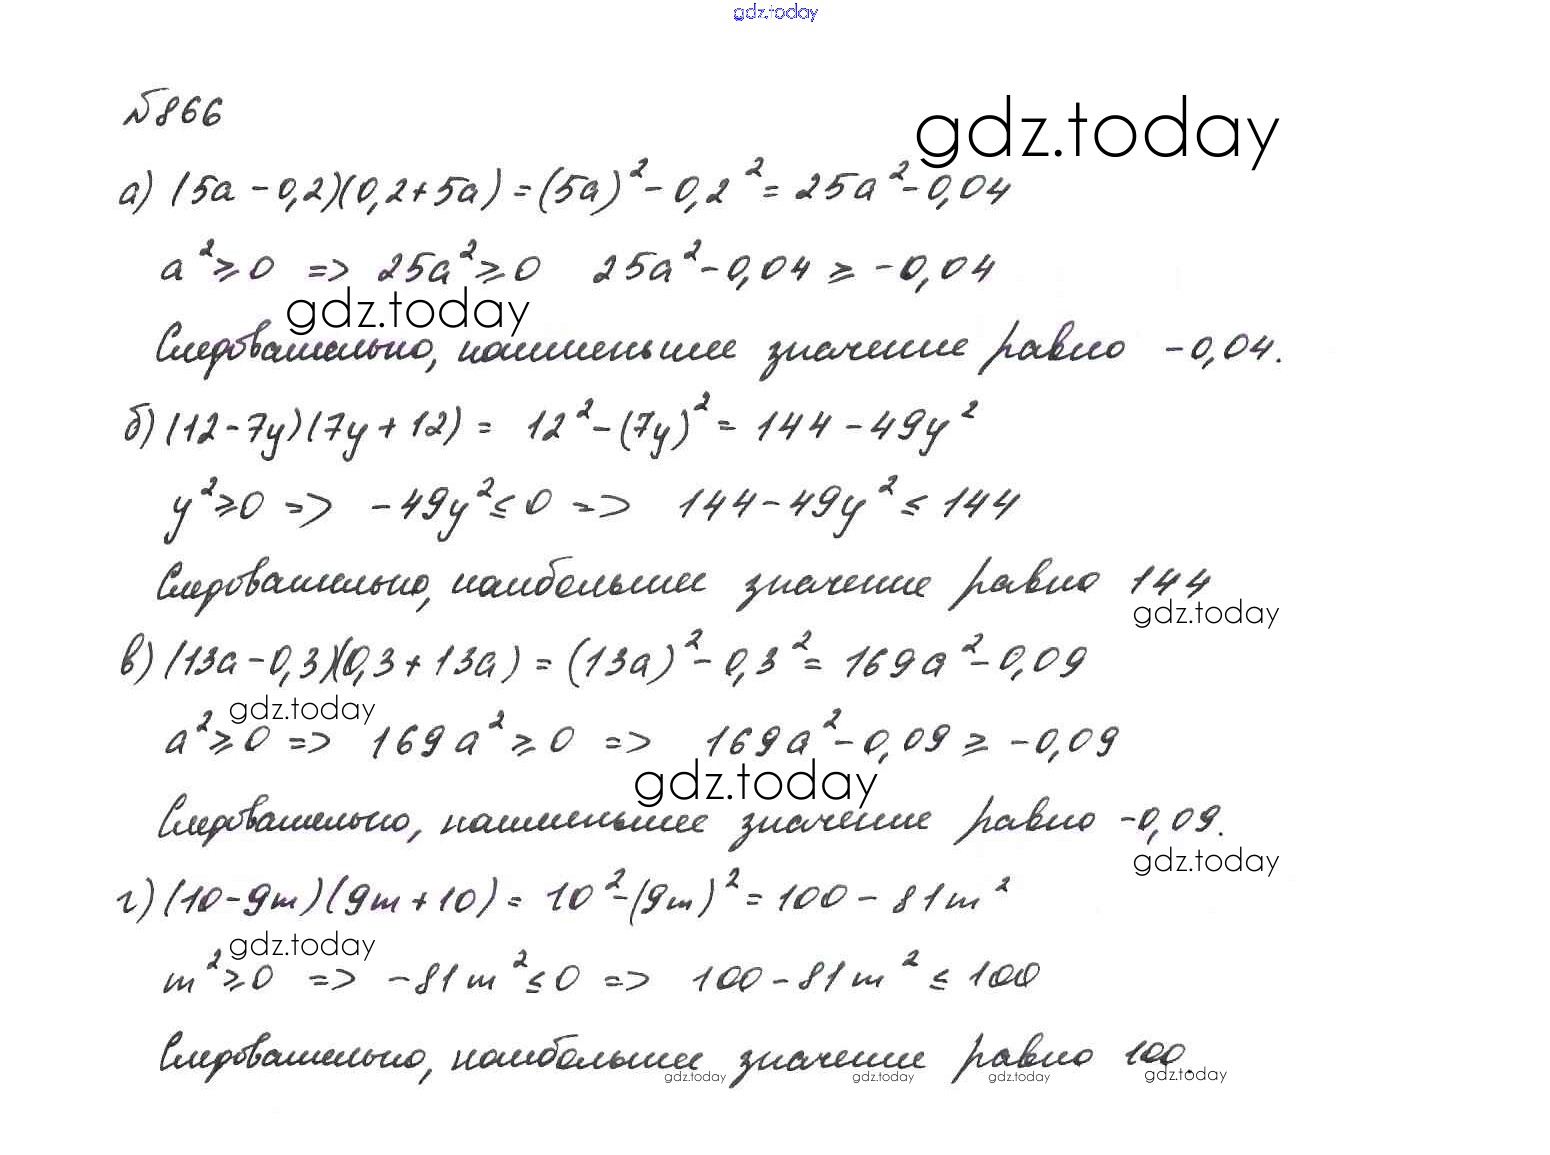 gdz.today
№866
gdz.today
а) (5a - 0,2)(0,2 + 5a) = (5a)² - 0,2² = 25a² - 0,04
a² ≥ 0 => 25a² ≥ 0 25a² - 0,04 ≥ -0,04
gdz.today
Следовательно, наименьшее значение равно -0,04.
б) (12 - 7y)(7y + 12) = 12² - (7y)² = 144 - 49y²
y² ≥ 0 => -49y² ≤ 0 => 144 - 49y² ≤ 144
Следовательно, наибольшее значение равно 144
gdz.today
в) (13a - 0,3)(0,3 + 13a) = (13a)² - 0,3² = 169a² - 0,09
gdz.today
a² ≥ 0 => 169a² ≥ 0 => 169a² - 0,09 ≥ -0,09
gdz.today
Следовательно, наименьшее значение равно -0,09.
gdz.today
г) (10 - 9m)(9m + 10) = 10² - (9m)² = 100 - 81m²
gdz.today
m² ≥ 0 => -81m² ≤ 0 => 100 - 81m² ≤ 100
Следовательно, наибольшее значение равно 100.
gdz.today gdz.today gdz.today gdz.today